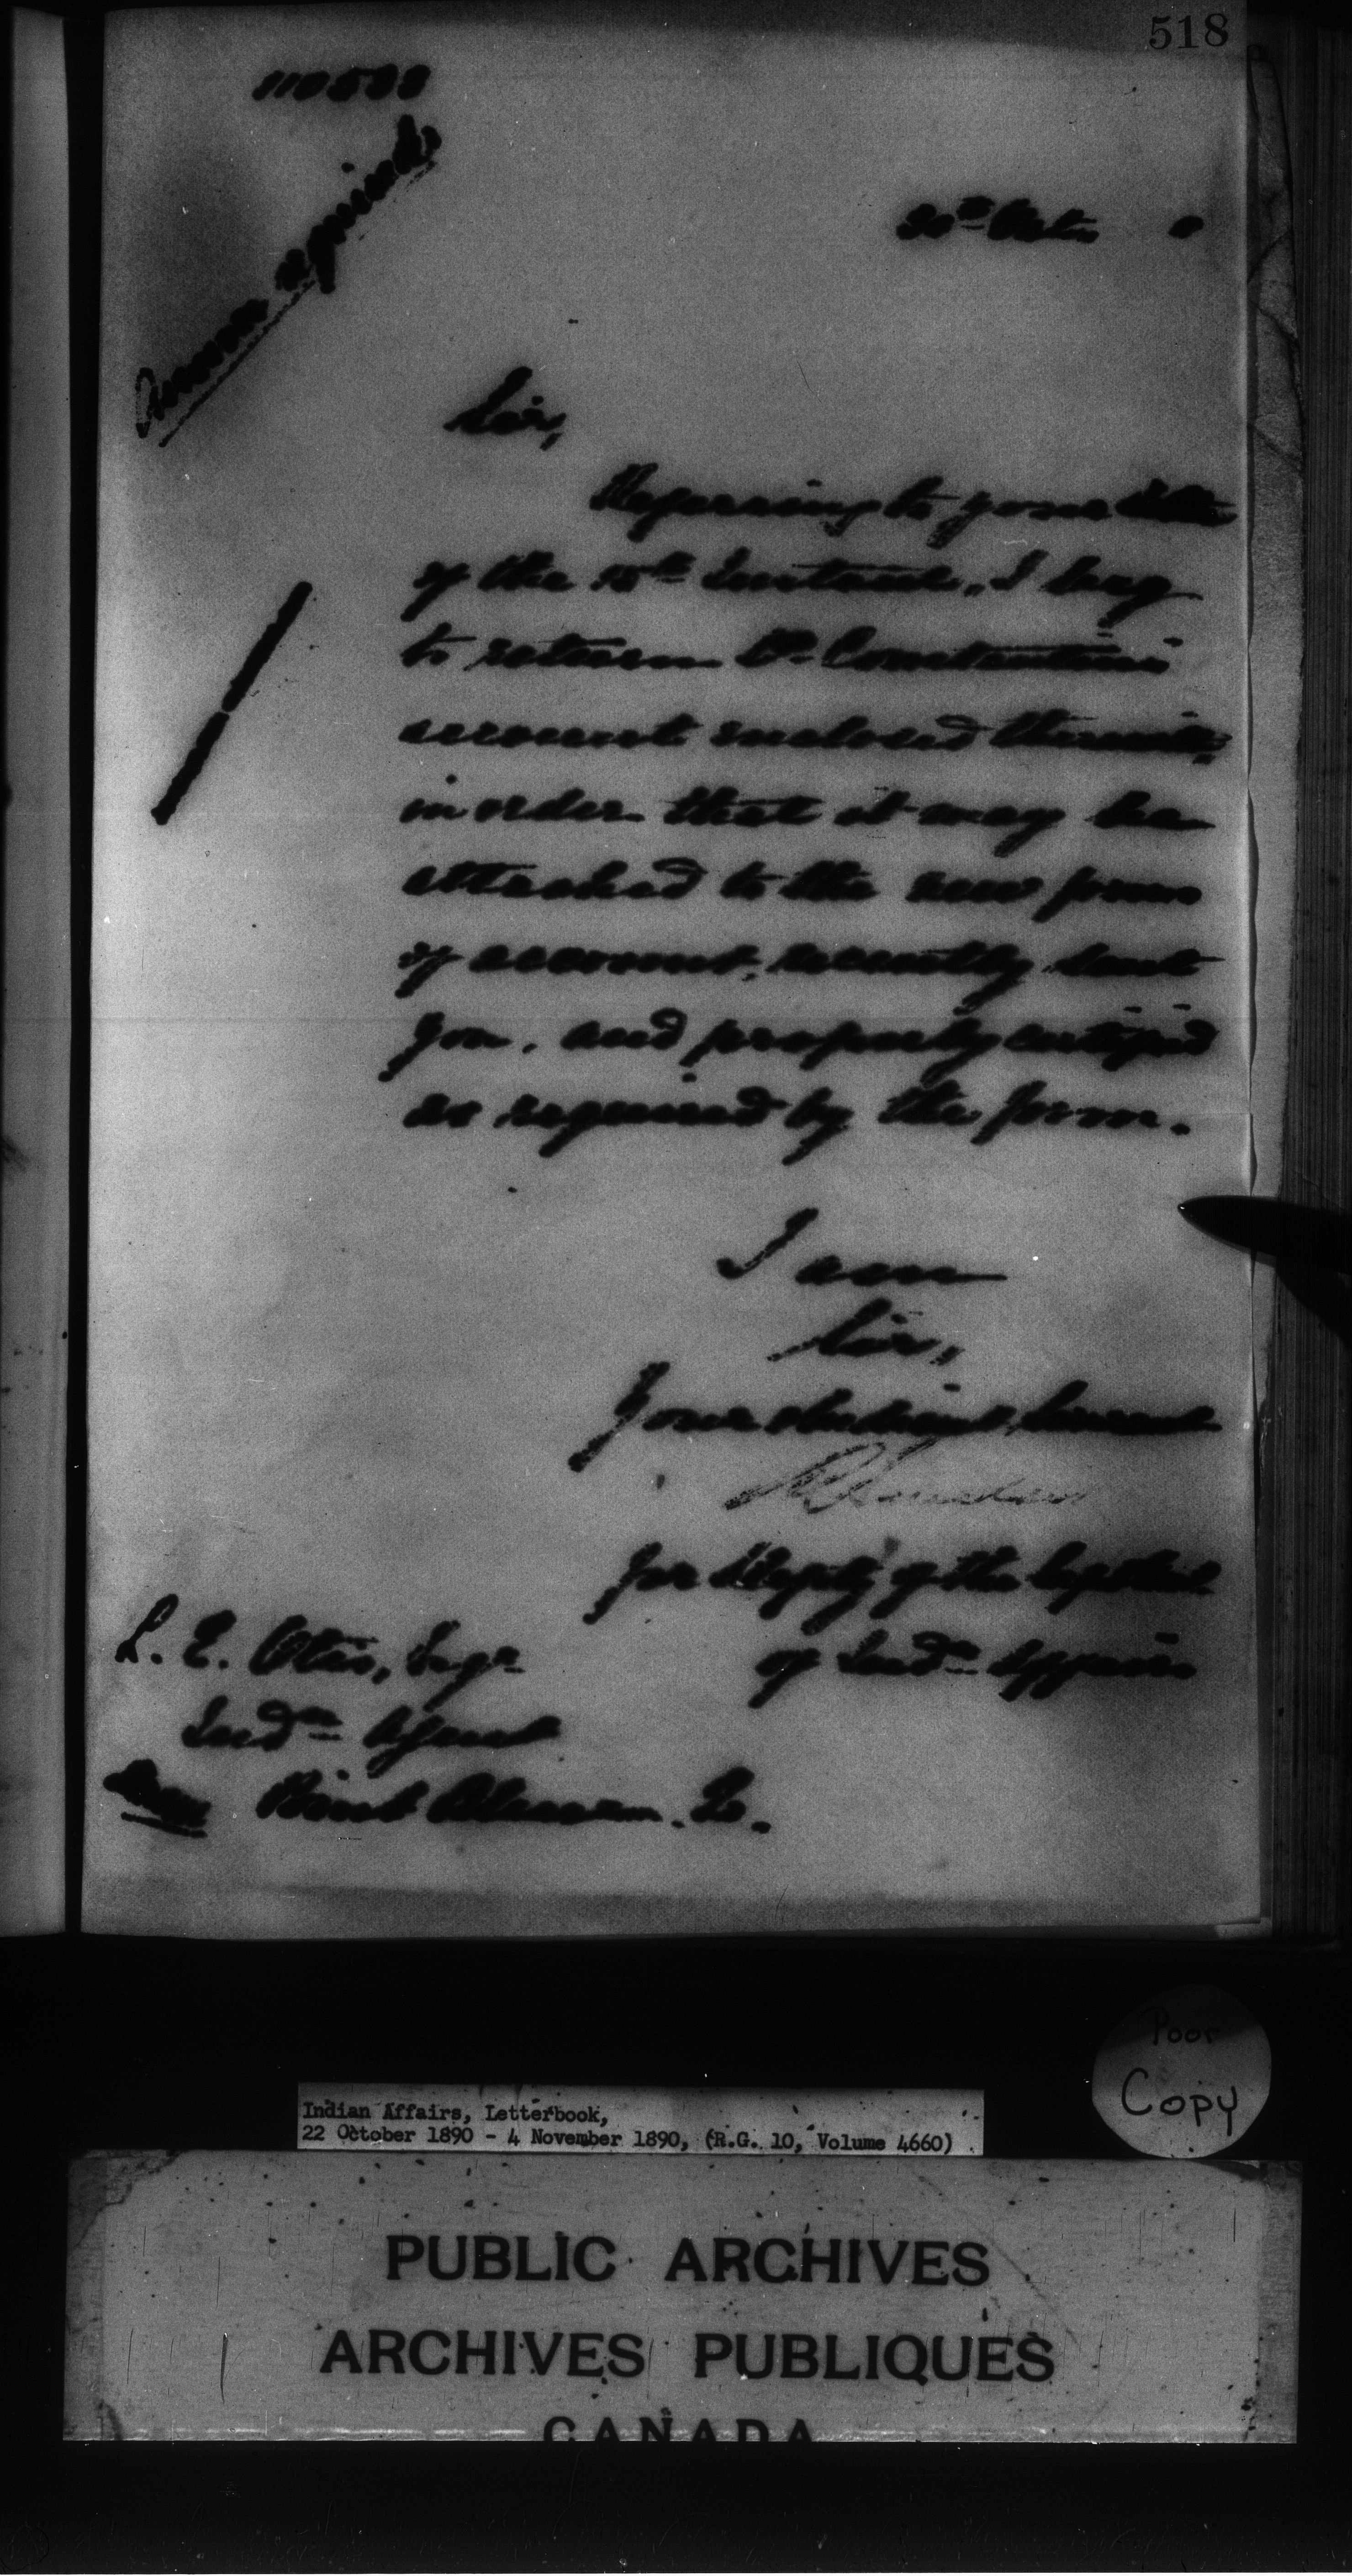 518
30th Octr 0
Sir,
Referring to your letter
of the 15th Instant, I beg
to return Dr. Constantin's
account enclosed therewith,
in order that it may be
attached to the new form
of account, recently sent
you, and properly certified
as required by the form.
I am
Sir,
Your obedient servant
for Deputy of the Supt Genl
of Indn Affairs
L. E. Otis, Esqr
Indn Agent
Point Bleue, Q.
Poor
Copy
Indian Affairs, Letterbook,
22 October 1890 - 4 November 1890, (R.G. 10, Volume 4660)
PUBLIC ARCHIVES
ARCHIVES PUBLIQUES
CANADA